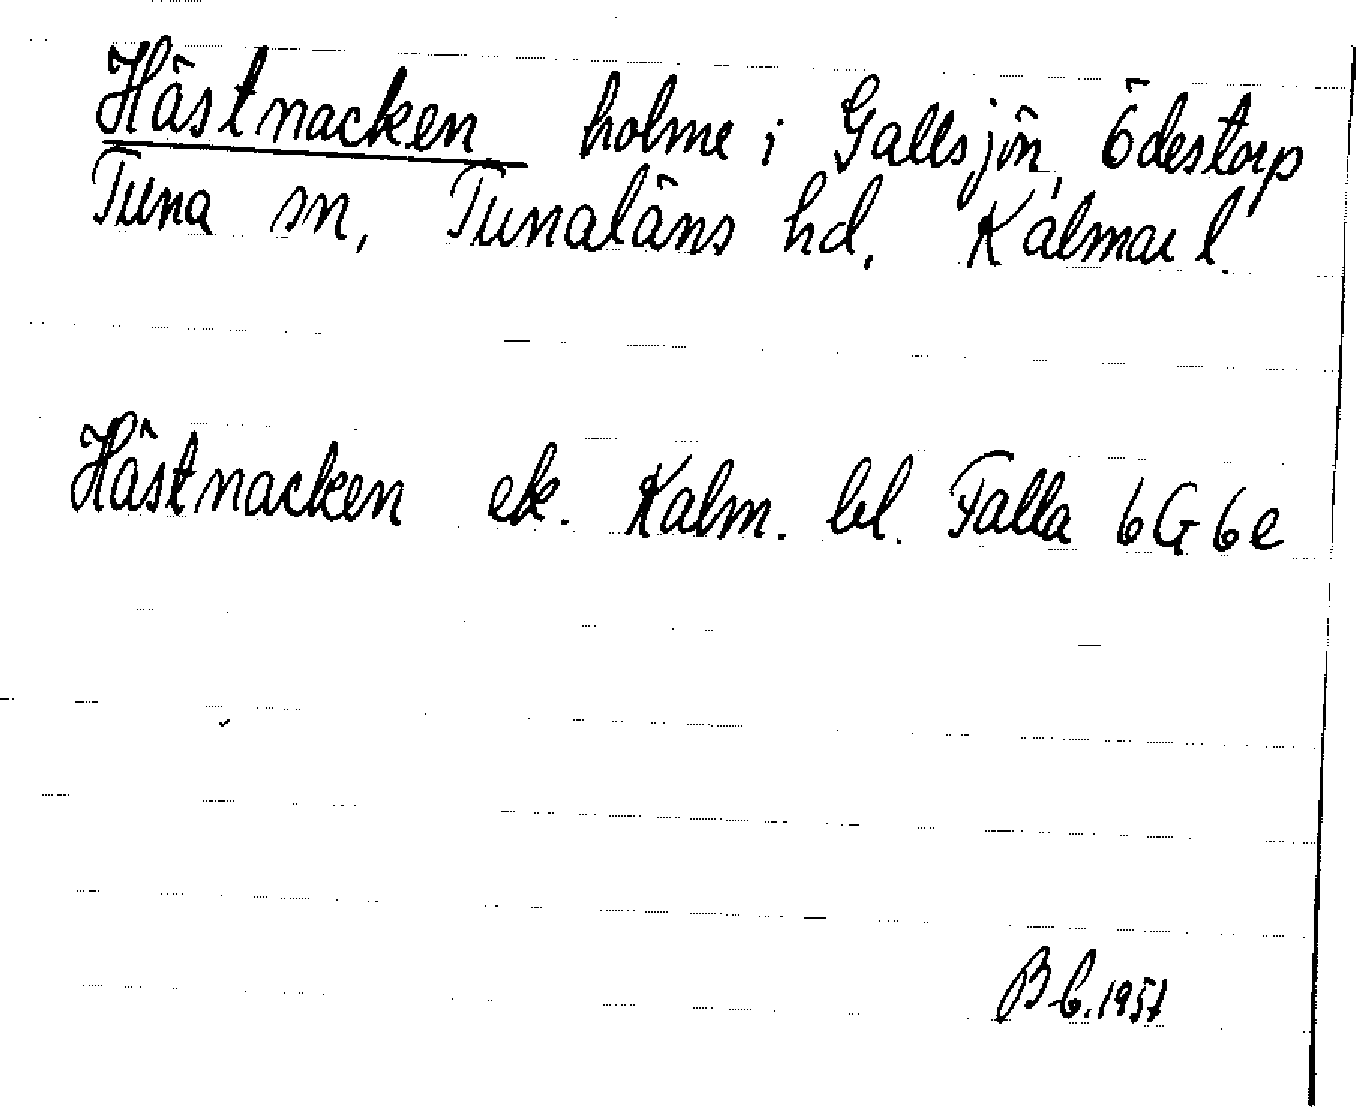 Hästnacken holme i Gallsjön, Ödestorp
Tuna sn, Tunaläns hd, Kalmar l.
Hästnacken ek. Kalm. bl. Falla 6G6e
B b. 1957